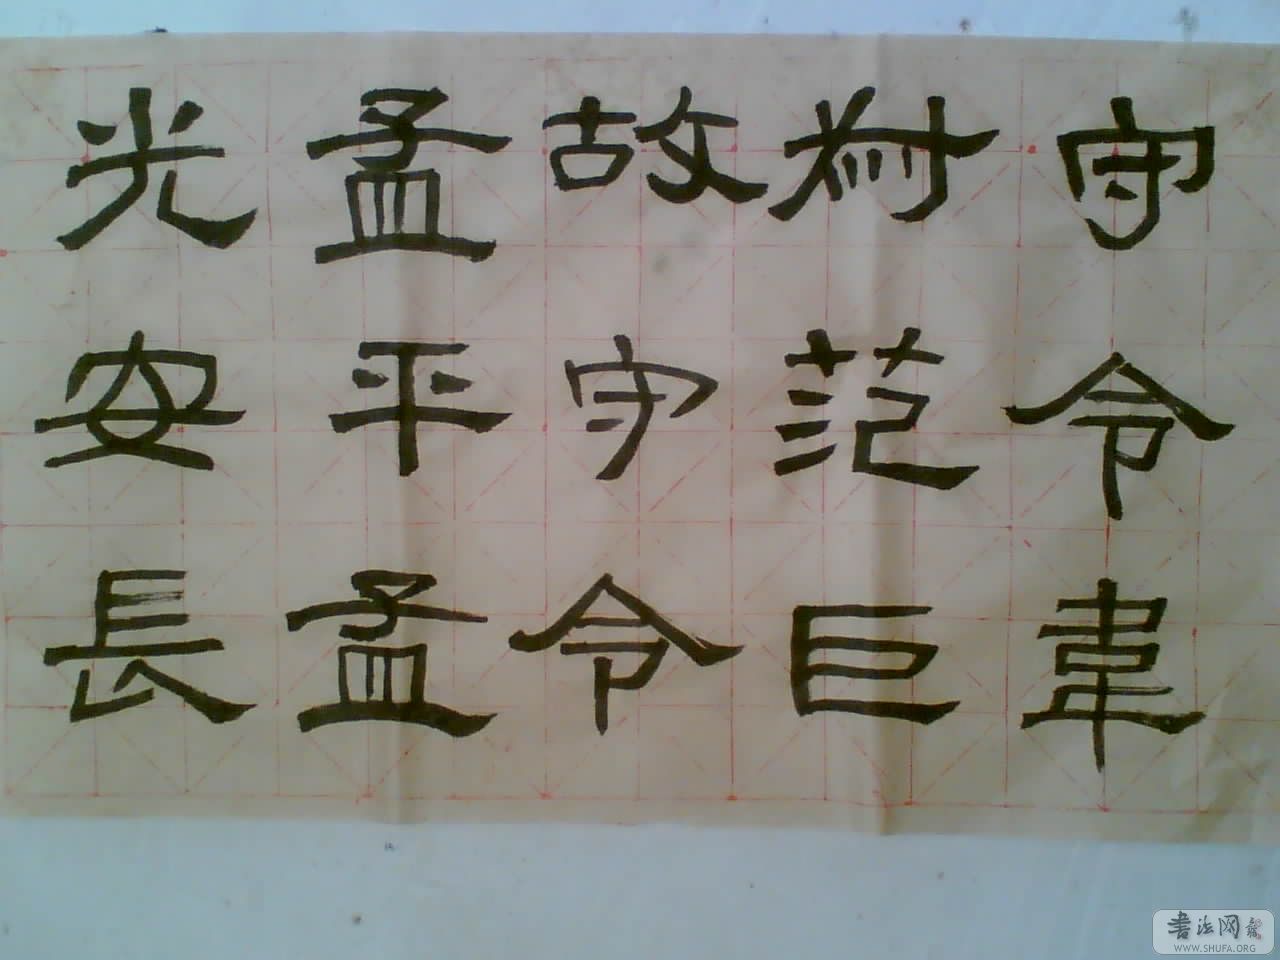 守令韋
叔范巨
故守令
孟平孟
光安長
書法网
WWW.SHUFA.ORG